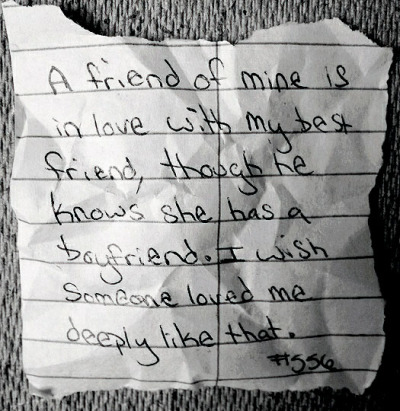 A friend of mine is
in love with my best
friend, though he
knows she has a
boyfriend. I wish
someone loved me
deeply like that.
#556